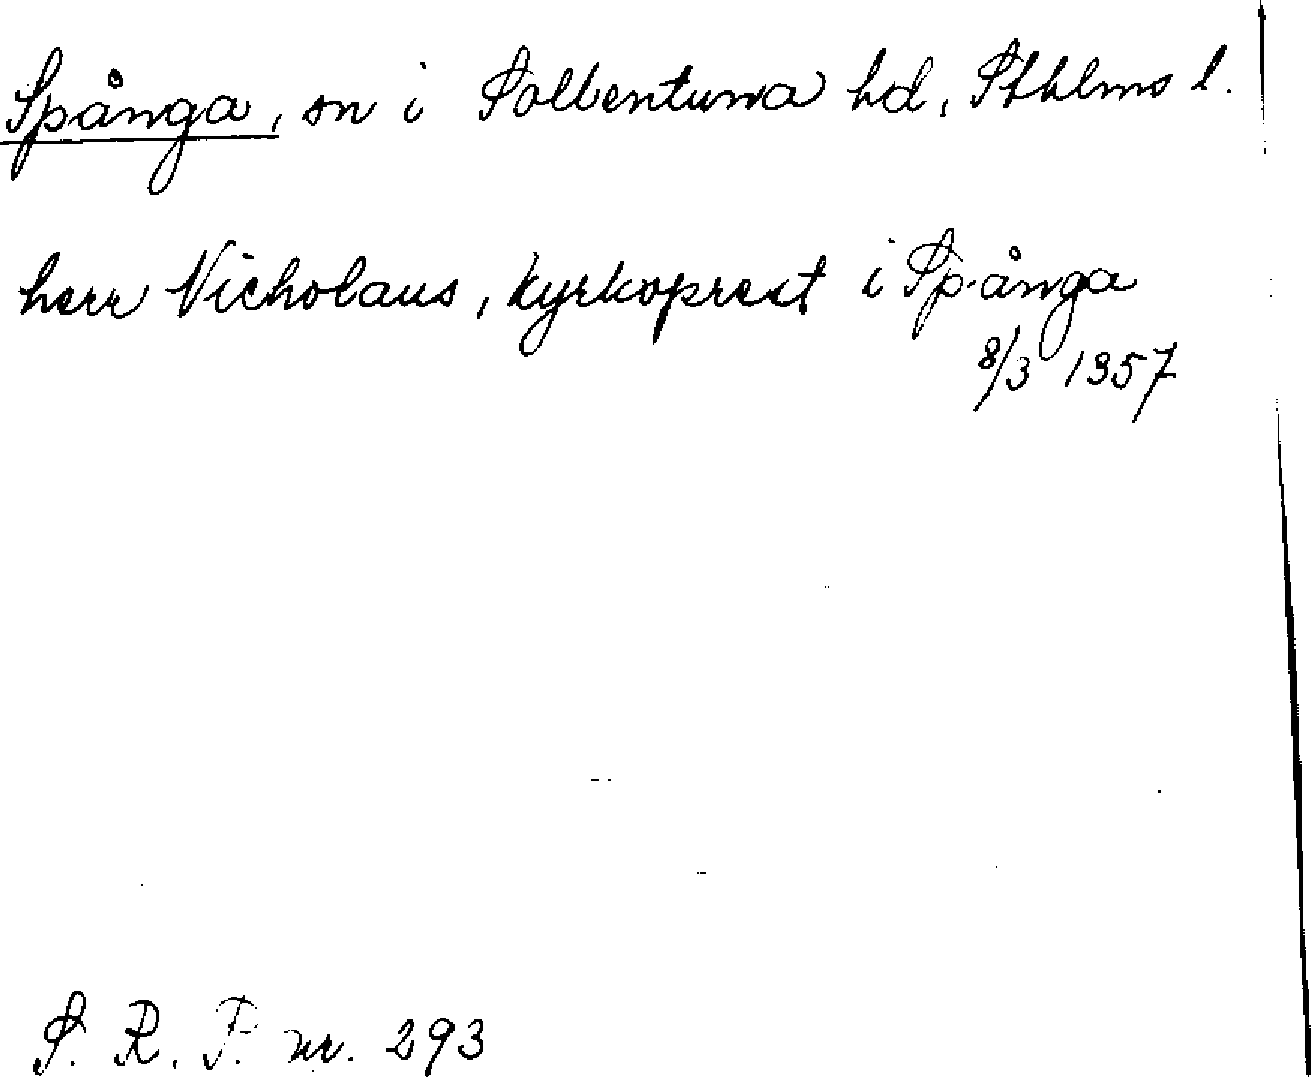 Spånga, sn i Sollentuna hd, Sthlms l.
herr Nicholaus, kyrkoprest i Spånga
8/3 1357
S. R. P. nr. 293